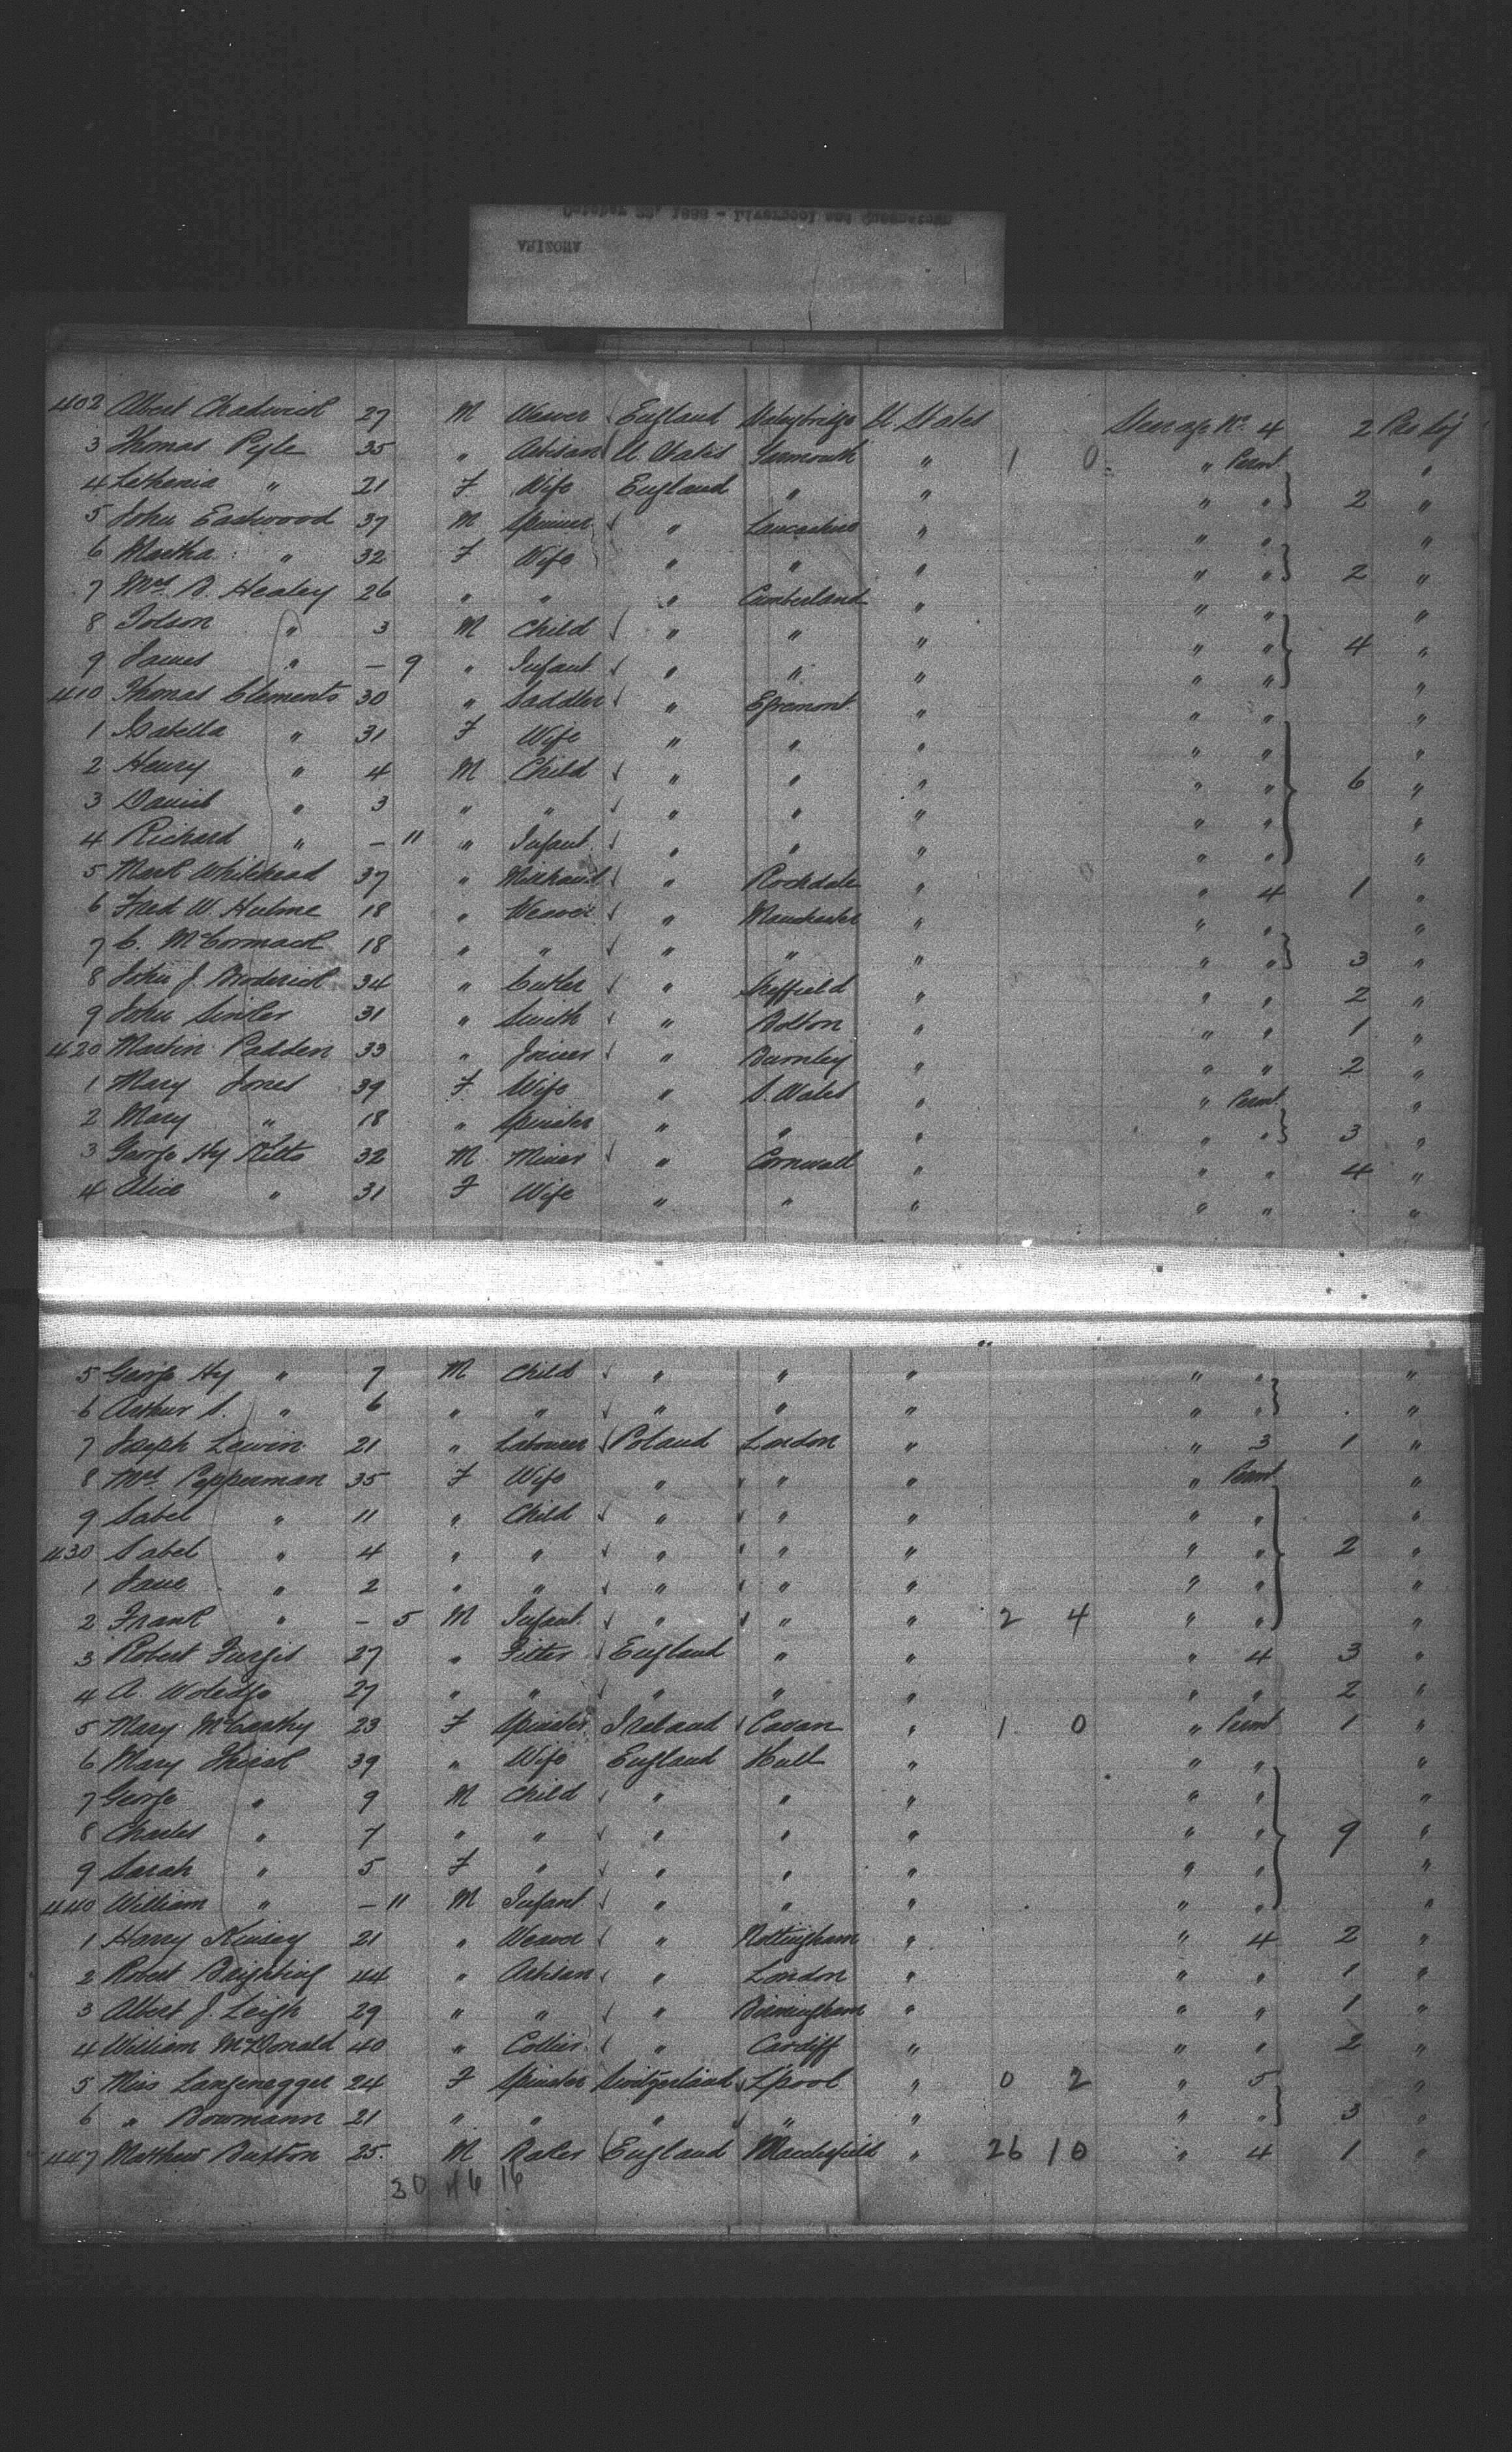 October 22, 1888 - Liverpool and Queenstown
ARIZONA
402 Albert Chadwick 27 M Weaver England Stalybridge U. States Steerage No. 4 2 Pro Soj
3 Thomas Pyle 35 " Artisan U. States " 1 0 " Permt "
4 " 21 F Wife England " " " " 2 "
5 John Eastwood 37 M Spinner " Lancashire " " " "
6 Martha " 32 F Wife " " " " " 2 "
7 Mrs. Healey 26 " " " Cumberland " " " "
8 Tolson " 3 M Child " " " " " 4 "
9 James " - 9 " Infant " " " " " "
410 Thomas Clements 30 " Saddler " Egremont " " " "
1 Isabella " 31 F Wife " " " " " "
2 Henry " 4 M Child " " " " " 6 "
3 Daniel " 3 " " " " " " " "
4 Richard " - 11 " Infant " " " " " "
5 Mark Whitehead 37 " Millhand " Rochdale " " 4 1 "
6 Fred W. Hulme 18 " Weaver " Manchester " " " "
7 C. McCormack 18 " " " " " " " 3 "
8 John J. Broderick 34 " Cutler " Sheffield " " " 2 "
9 John 31 " Smith " Bolton " " " 1 "
420 Martin Padden 33 " Joiner " Burnley " " " 2 "
1 Mary Jones 39 F Wife " S. Wales " " Permt "
2 Mary " 18 " Spinster " " " " " 3 "
3 George Hy Kitto 32 M Miner " Cornwall " " " 4 "
4 Alice " 31 F Wife " " " " " "
5 George Hy " 7 M Child " " " " " "
6 Arthur S. " 6 " " " " " " " "
7 Joseph Lewin 21 " Labourer Poland London " " 3 1 "
8 Mrs. Pepperman 35 F Wife " " " " Permt "
9 Sabel " 11 " Child " " " " " "
430 Sabel " 4 " " " " " " " 2 "
1 Jane " 2 " " " " " " " "
2 Frank " - 5 M Infant " " " 2 4 " " "
3 Robert 27 " Fitter England " " " 4 3 "
4 A. 27 " " " " " " " 2 "
5 Mary McCarthy 23 F Spinster Ireland Cavan " 1 0 " Permt 1 "
6 Mary 39 " Wife England Hull " " " "
7 George " 9 M Child " " " " " "
8 Charles " 7 " " " " " " " 9 "
9 Sarah " 5 F " " " " " " "
440 William " - 11 M Infant " " " " " "
1 Harry Kinsey 21 " Weaver " Nottingham " " 4 2 "
2 Robert 44 " Artisan " London " " " 1 "
3 Albert J. Leigh 29 " " " Birmingham " " " 1 "
4 William McDonald 40 " Collier " Cardiff " " " 2 "
5 Miss Langenegger 24 F Spinster Switzerland L'pool " 0 2 " 5 "
6 " Bowmann 21 " " " " " " " 3 "
447 Matthew Buxton 25 M Baker England Macclesfield " 26 10 " 4 1 "
30 46 16